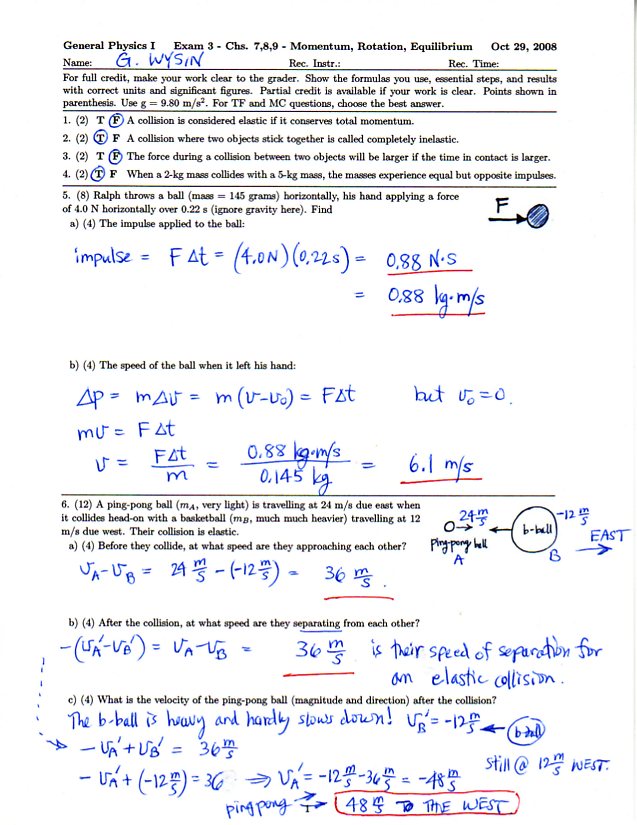 General Physics I Exam 3 - Chs. 7,8,9 - Momentum, Rotation, Equilibrium Oct 29, 2008
Name: G. WYSIN Rec. Instr.: Rec. Time:
For full credit, make your work clear to the grader. Show the formulas you use, essential steps, and results
with correct units and significant figures. Partial credit is available if your work is clear. Points shown in
parenthesis. Use g = 9.80 m/s². For TF and MC questions, choose the best answer.
1. (2) T F A collision is considered elastic if it conserves total momentum.
2. (2) T F A collision where two objects stick together is called completely inelastic.
3. (2) T F The force during a collision between two objects will be larger if the time in contact is larger.
4. (2) T F When a 2-kg mass collides with a 5-kg mass, the masses experience equal but opposite impulses.
5. (8) Ralph throws a ball (mass = 145 grams) horizontally, his hand applying a force
of 4.0 N horizontally over 0.22 s (ignore gravity here). Find
F
a) (4) The impulse applied to the ball:
impulse = FΔt = (4.0N)(0.22s) = 0.88 N·S
= 0.88 kg·m/s
b) (4) The speed of the ball when it left his hand:
Δp = mΔv = m(v-v₀) = FΔt but v₀=0.
mv = FΔt
v = FΔt/m = 0.88 kg·m/s / 0.145 kg = 6.1 m/s
6. (12) A ping-pong ball (mA, very light) is travelling at 24 m/s due east when
it collides head-on with a basketball (mB, much much heavier) travelling at 12
m/s due west. Their collision is elastic.
24 m/s b-ball -12 m/s
Ping-pong ball A B EAST
a) (4) Before they collide, at what speed are they approaching each other?
vA-vB = 24 m/s - (-12 m/s) = 36 m/s.
b) (4) After the collision, at what speed are they separating from each other?
-(vA'-vB') = vA-vB = 36 m/s is their speed of separation for
an elastic collision.
c) (4) What is the velocity of the ping-pong ball (magnitude and direction) after the collision?
The b-ball is heavy and hardly slows down! vB' = -12 m/s b-ball
-vA' + vB' = 36 m/s
still @ 12 m/s WEST.
-vA' + (-12 m/s) = 36 ⇒ vA' = -12 m/s - 36 m/s = -48 m/s
ping pong 48 m/s TO THE WEST